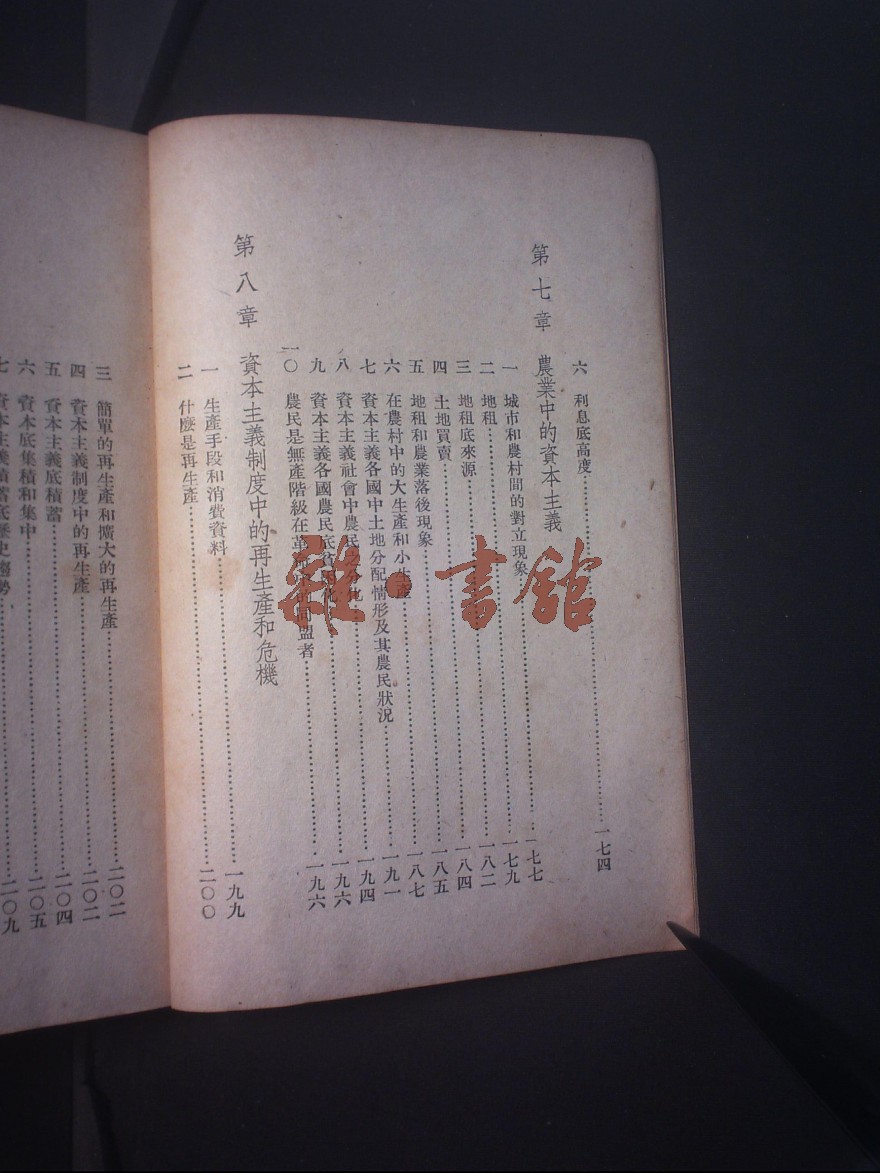 六 利息底高度……一七四
第七章 農業中的資本主義
一 城市和農村間的對立現象……一七七
二 地租……一七九
三 地租底來源……一八二
四 土地買賣……一八四
五 地租和農業落後現象……一八五
六 在農村中的大生產和小生產……一八七
七 資本主義各國中土地分配情形及其農民狀況……一九一
八 資本主義社會中農民之分化……一九四
九 資本主義各國農民底貧困化……一九六
一〇 農民是無產階級在革命中的同盟者……一九六
第八章 資本主義制度中的再生產和危機
一 生產手段和消費資料……一九九
二 什麼是再生產……二〇〇
三 簡單的再生產和擴大的再生產……二〇二
四 資本主義制度中的再生產……二〇二
五 資本主義底積蓄……二〇四
六 資本底集積和集中……二〇五
七 資本主義積蓄底歷史趨勢……二〇九
雜·書館